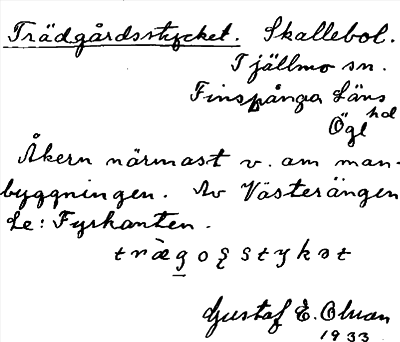 Trädgårdsstycket. Skallebol.
Tjällmo sn.
Finspånga Läns
hd
Ögl
Åkern närmast v. om man-
byggningen. Av Västerängen
Le: Fyrkanten.
Gustaf E. Olson
1933